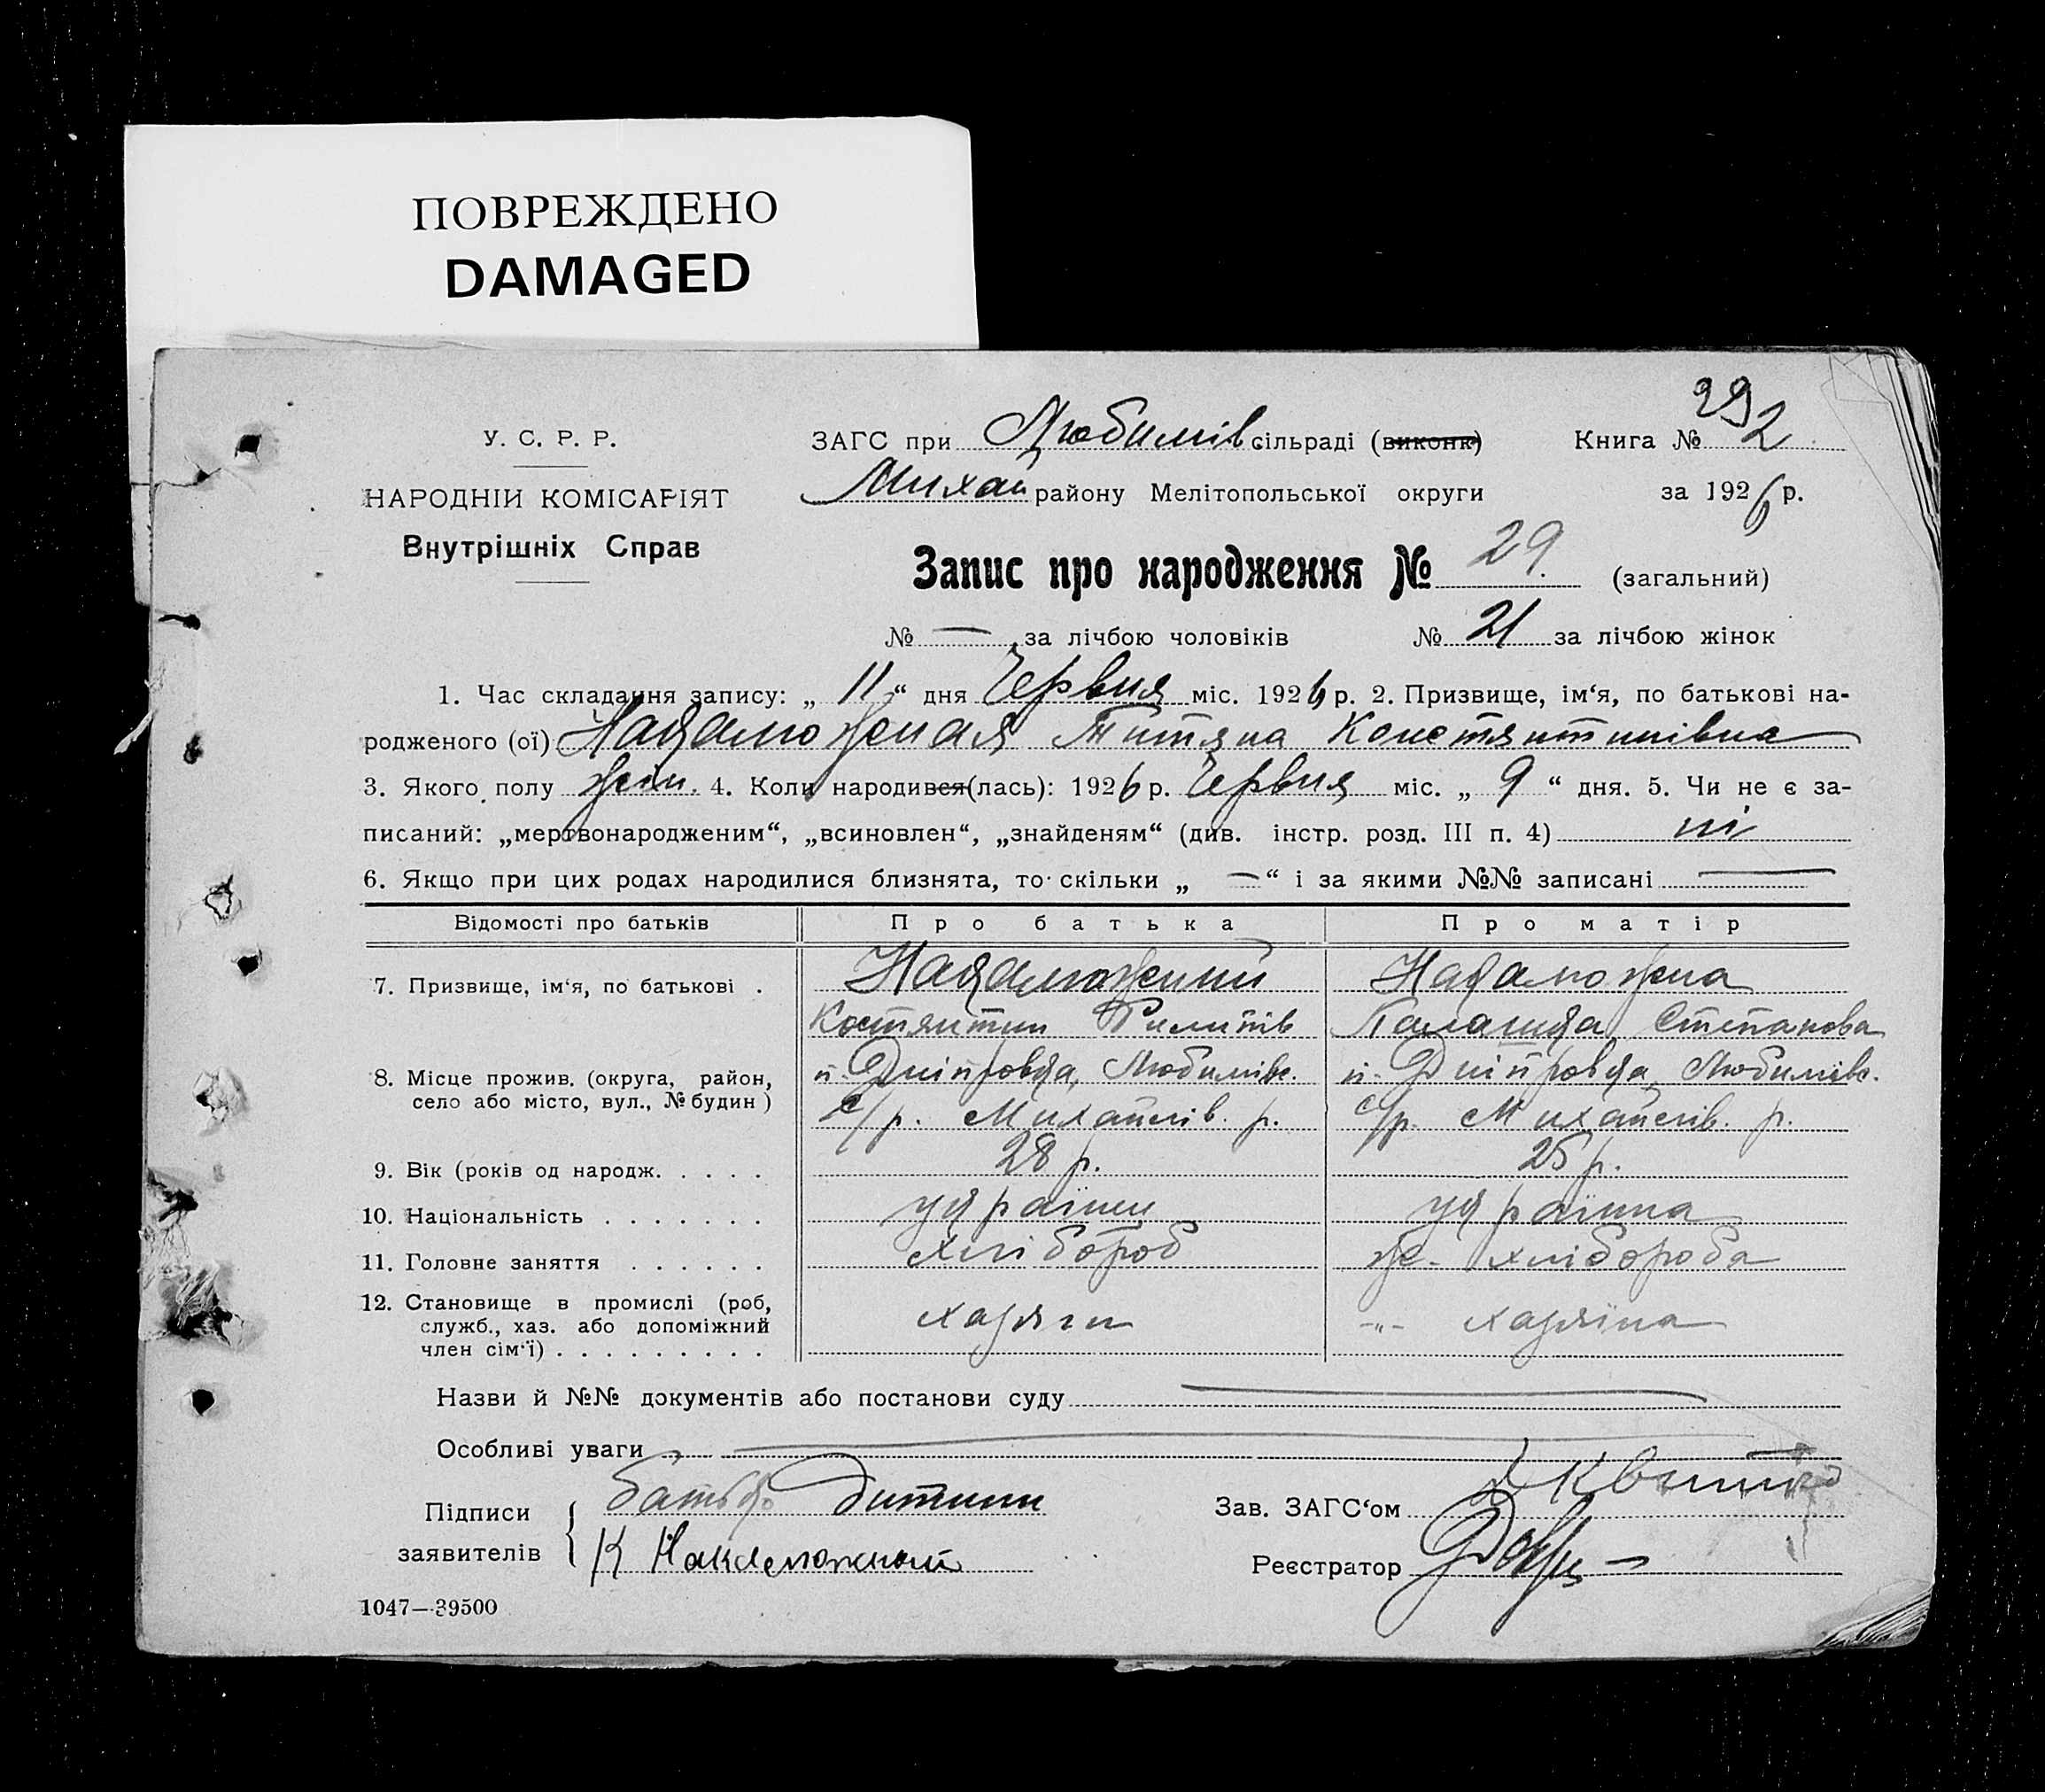 ПОВРЕЖДЕНО
DAMAGED
29
У. С. Р. Р.
НАРОДНІЙ КОМІСАРІЯТ
Внутрішніх Справ
ЗАГС при Любимів сільраді (виконк) Книга № 2
Михай району Мелітопольської округи за 1926 р.
Запис про народження № 29. (загальний)
№ — за лічбою чоловіків № 21 за лічбою жінок
1. Час складання запису: „ 11 “ дня Червня міс. 1926 р. 2. Призвище, ім‘я, по батькові на-
родженого (ої) Накаможная Титяна Констянтинівна
3. Якого полу жін. 4. Коли народився(лась): 1926 р. Червня міс. „ 9 “ дня. 5. Чи не є за-
писаний: „мертвонародженим“, „всиновлен“, „знайденям“ (див. інстр. розд. III п. 4) ні
6. Якщо при цих родах народилися близнята, то скільки „ — “ і за якими №№ записані —
Відомості про батьків Про батька Про матір
7. Призвище, ім‘я, по батькові . Накаможний Накаможна
Костянтин Пилипів Палашка Степанова
8. Місце прожив. (округа, район, п. Дніпровка, Любимівс. п. Дніпровка, Любимівс.
село або місто, вул., № будин) с/р. Михайлів. р. с/р. Михайлів. р.
9. Вік (років од народж. . . . . 28 р. 25 р.
10. Національність . . . . . . . украінц украінка
11. Головне заняття . . . . . . хлібороб ж. хлібороба
12. Становище в промислі (роб, хазяін -„- хазяіна
служб., хаз. або допоміжний
член сім‘ї) . . . . . . . . .
Назви й №№ документів або постанови суду —
Особливі уваги —
Підписи батько дитини Зав. ЗАГС‘ом
заявителів К Накаможний Реєстратор
1047—39500